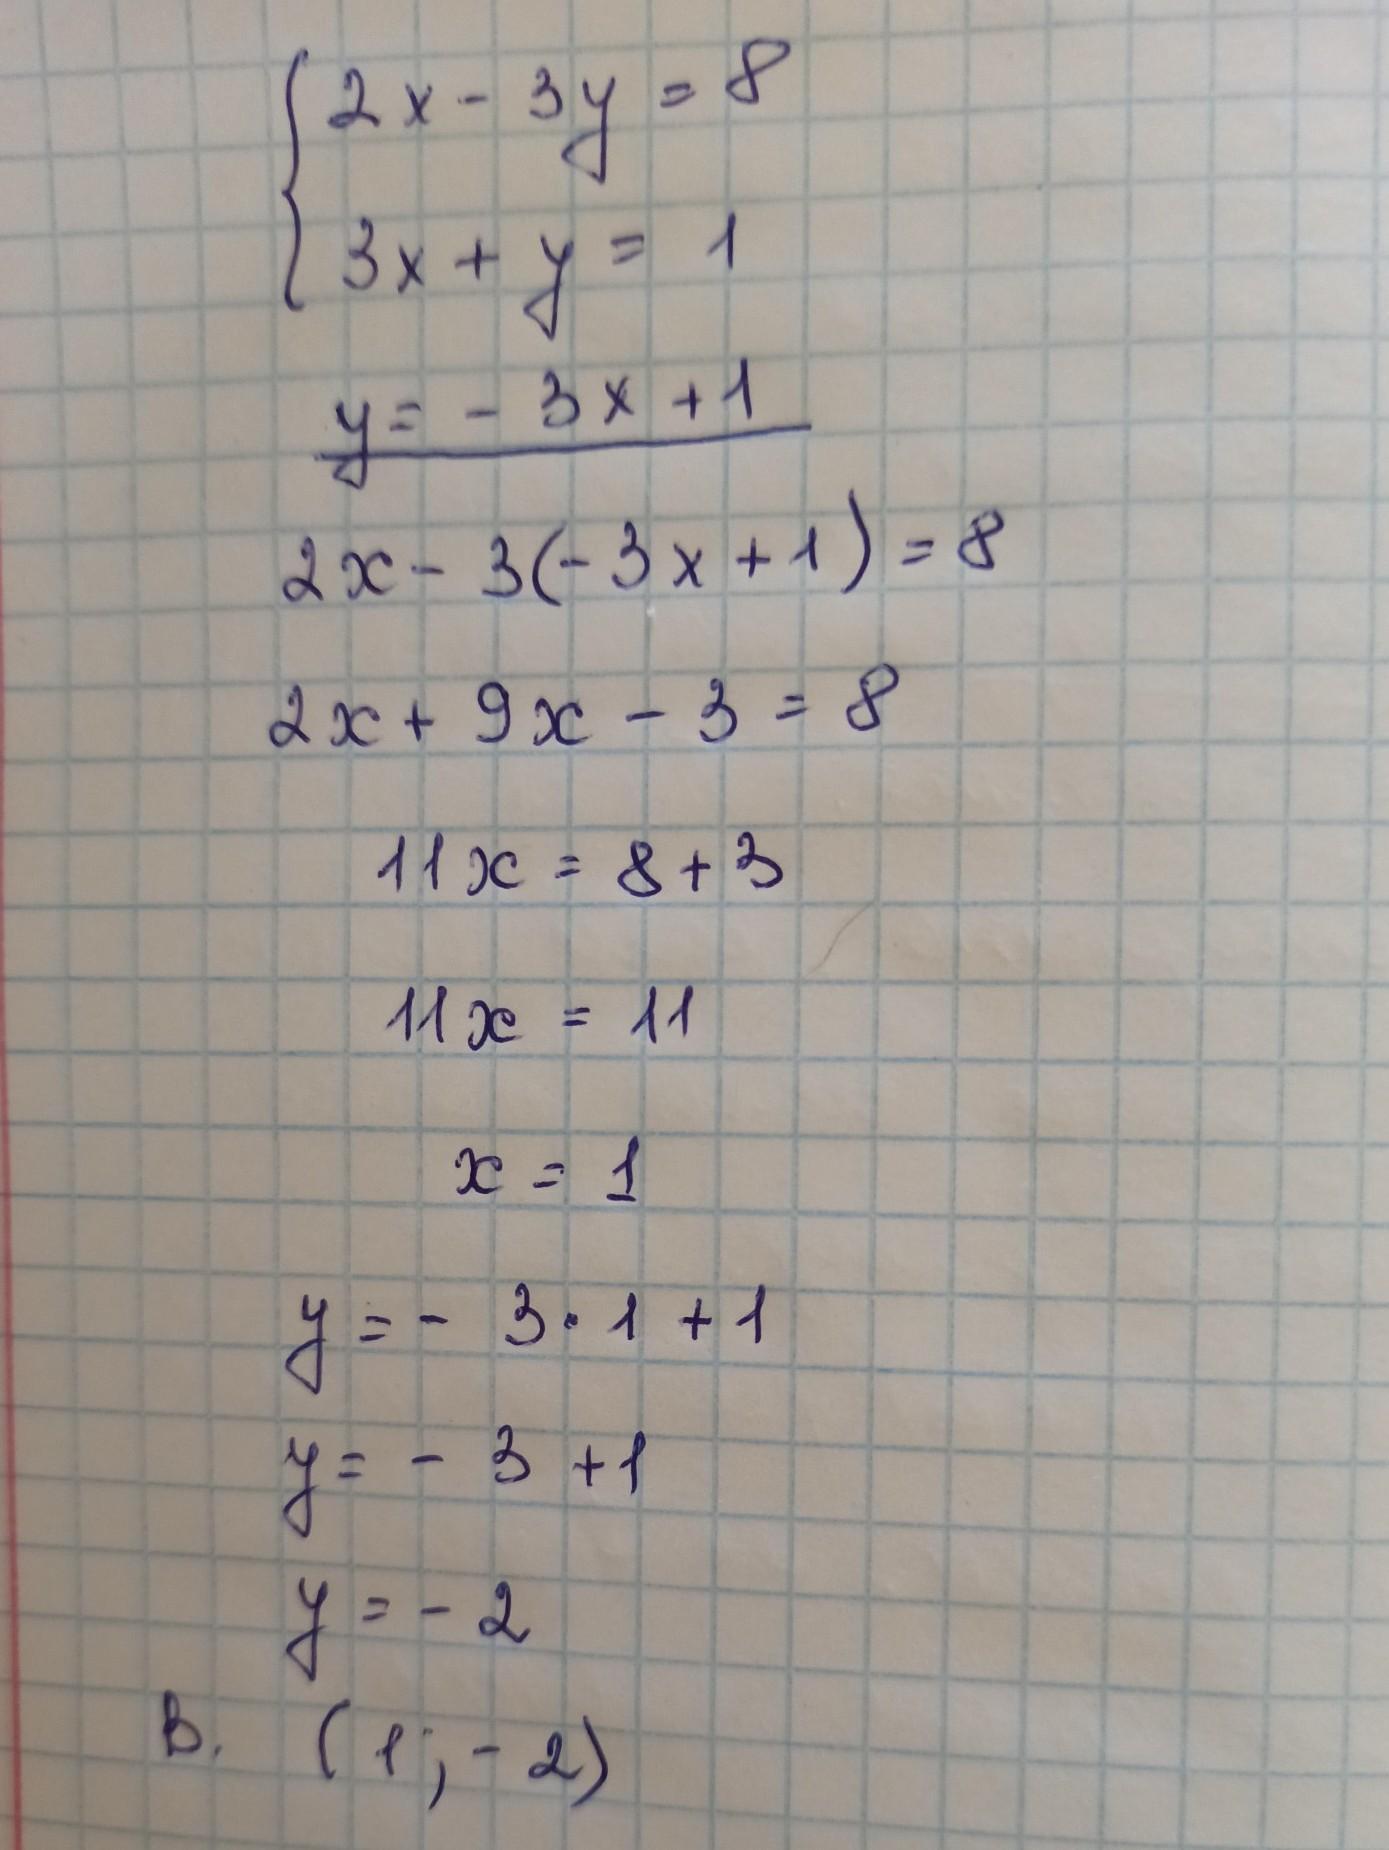 2x - 3y = 8
3x + y = 1
y = - 3x + 1
2x - 3(- 3x + 1) = 8
2x + 9x - 3 = 8
11x = 8 + 3
11x = 11
x = 1
y = - 3 · 1 + 1
y = - 3 + 1
y = - 2
В. (1; - 2)